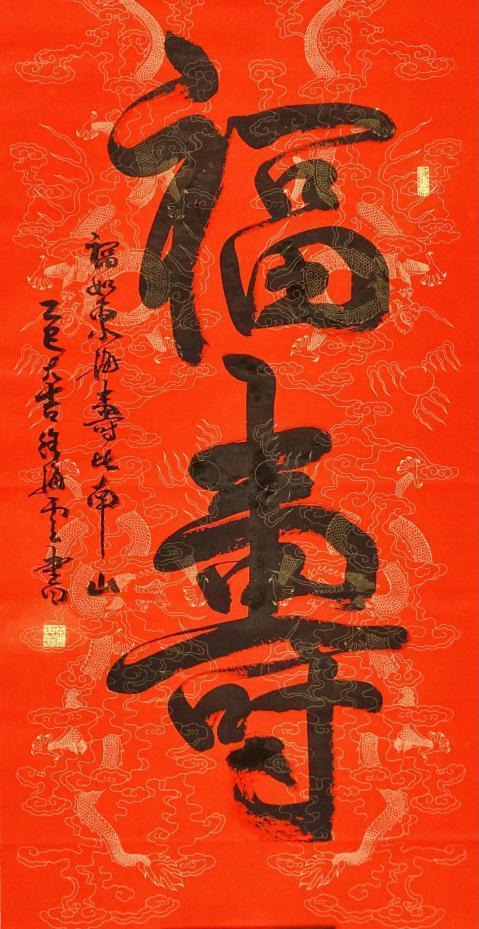 福壽
福如東海壽比南山
乙巳大吉徐海雲書